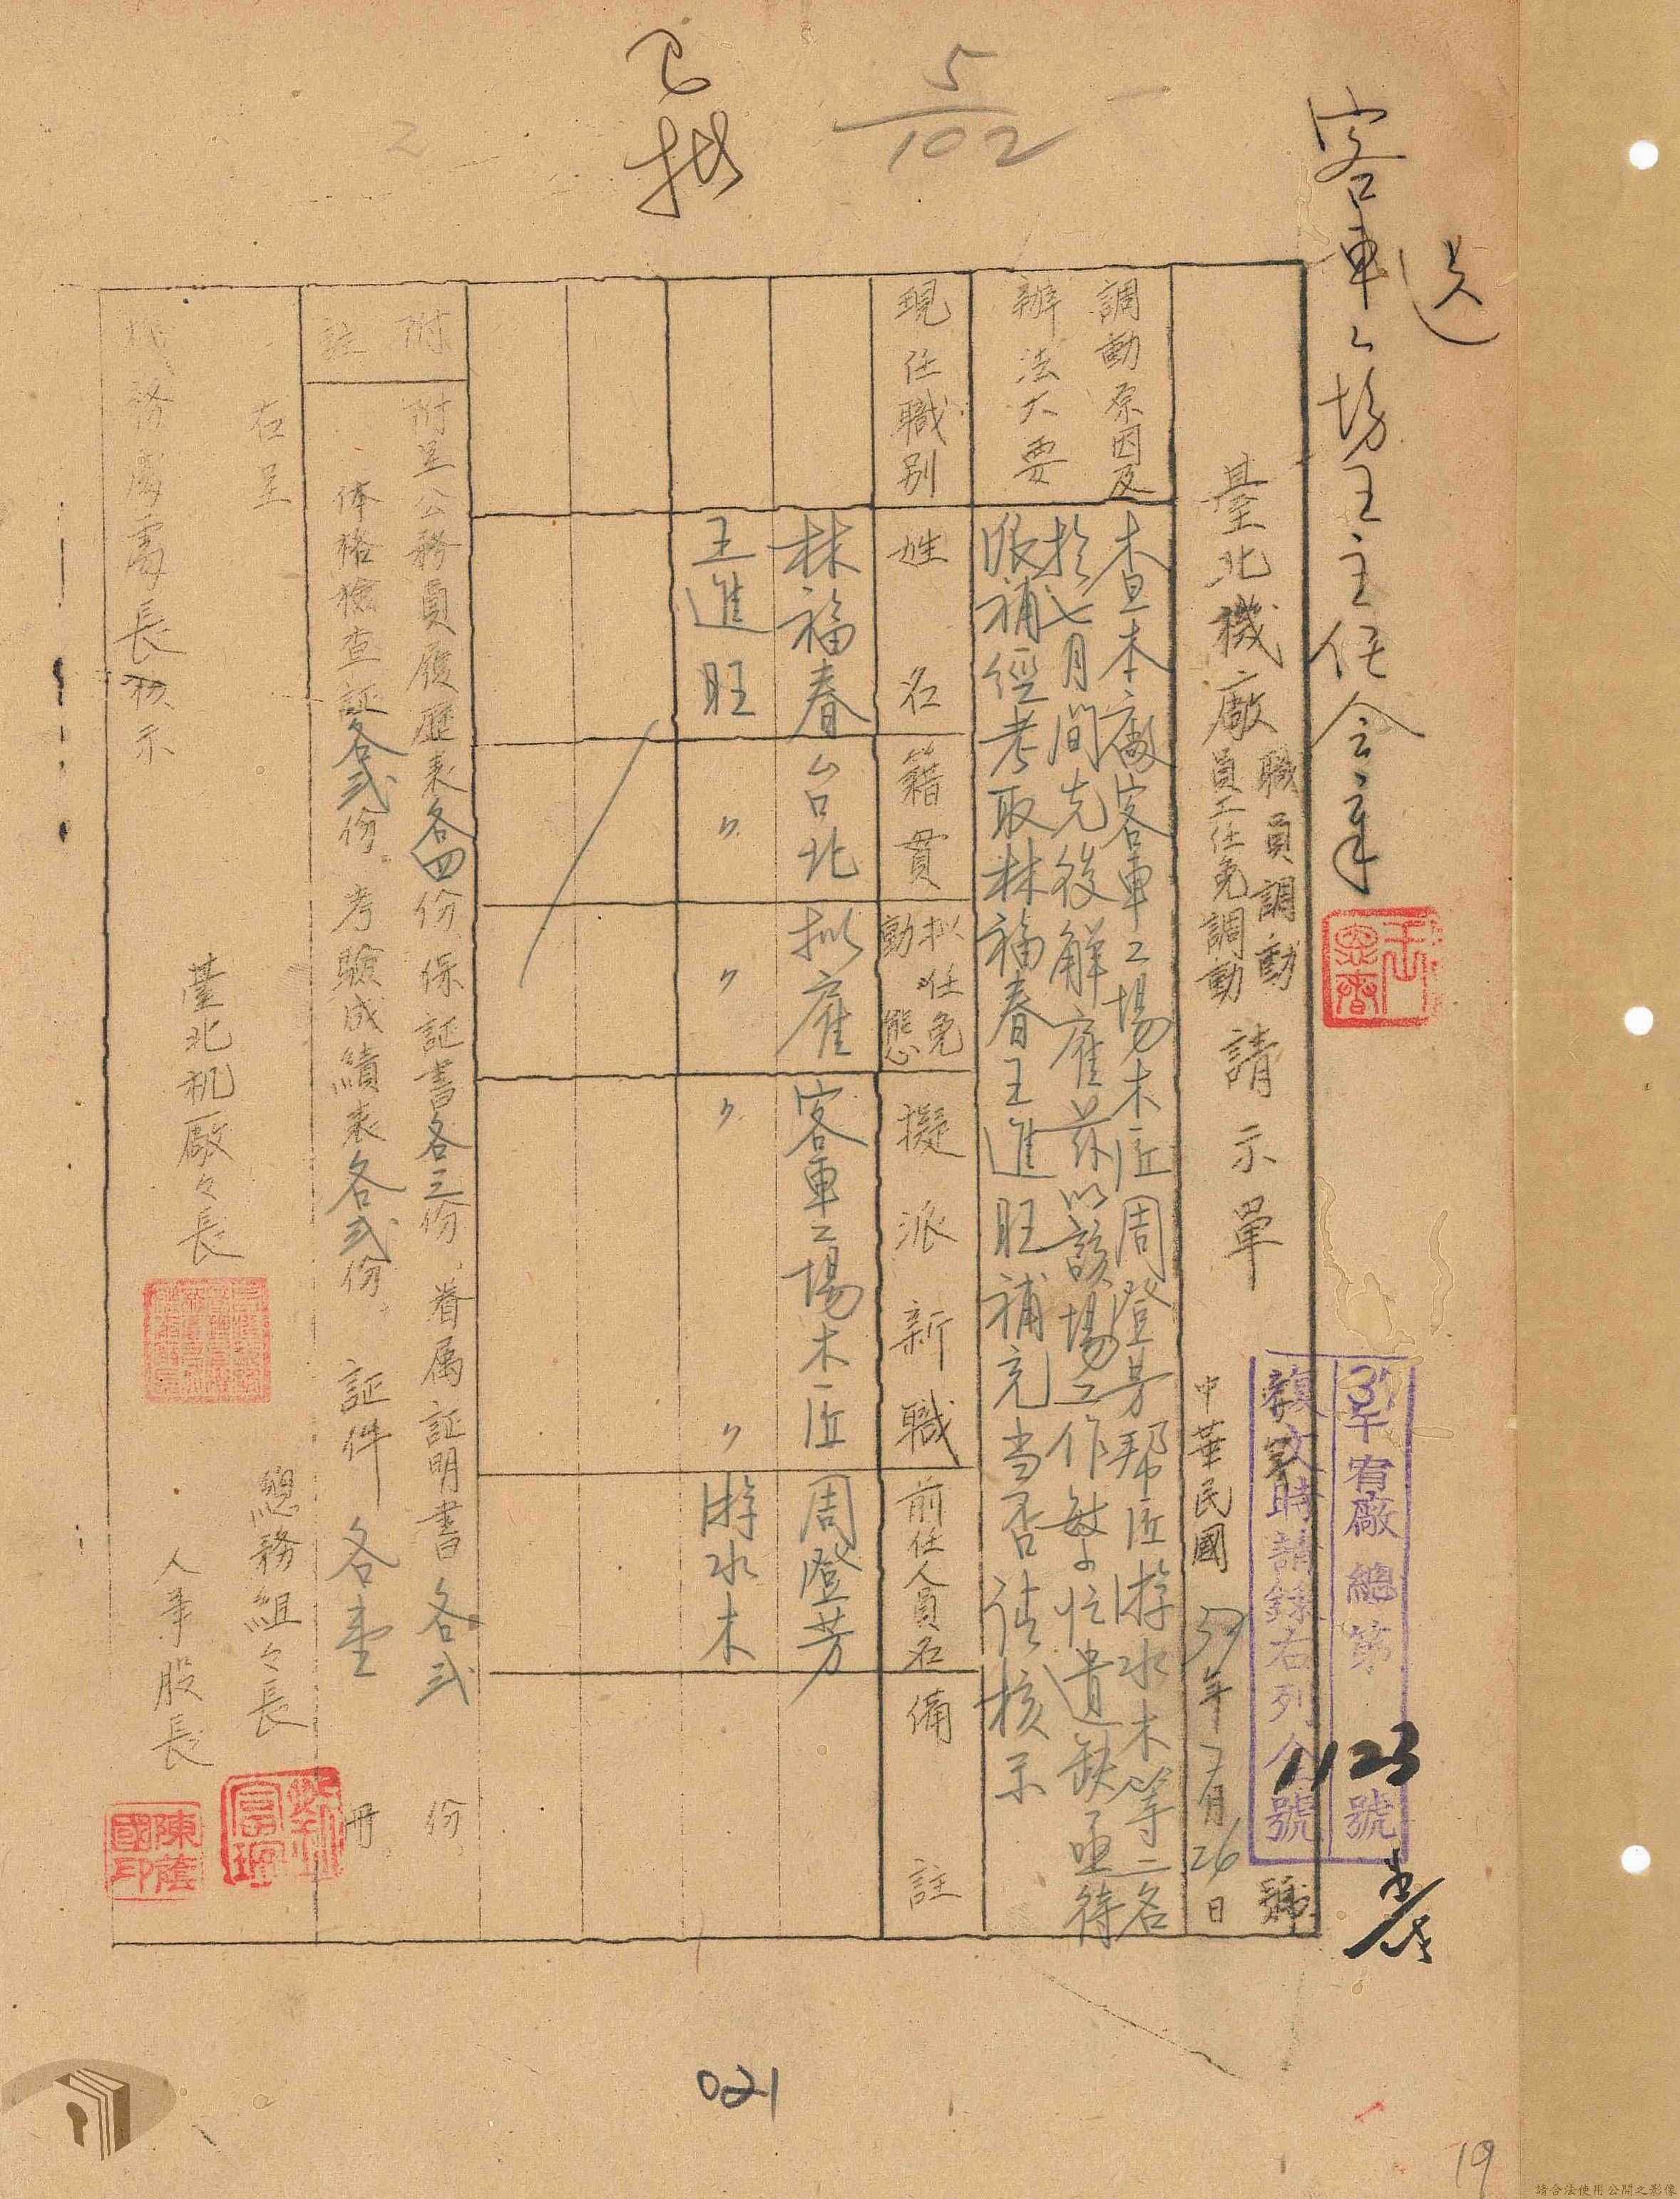 送
客車工場王主任會章
已批
5/102
37午宥廠總第1123號
覆文時請錄右列公號
臺北機廠職員調動
員工任免調動請示單
號
中華民國37年7月26日
調動原因及辦法大要
查本廠客車工場木匠周登芳帮匠游水木等二名
於七月間先後解雇茲以該場工作繁忙遺缺亟待
派補經考取林福春王進旺補充当否请核示
現任職別
姓名
籍貫
拟任免動態
擬派新職
前任人員名
備註
林福春 台北 拟雇 客車工場木匠 周登芳
王進旺 〃 〃 〃 〃 游水木
附註
附呈公務員履歷表各四份保証書各三份眷属証明書各弍份
体格檢查証各弍份考驗成績表各弍份証件各壹冊
右呈
機務處處長核示
臺北机廠々長
總務組々長
人事股長
陳蔭國印
021
19
請合法使用公開之影像